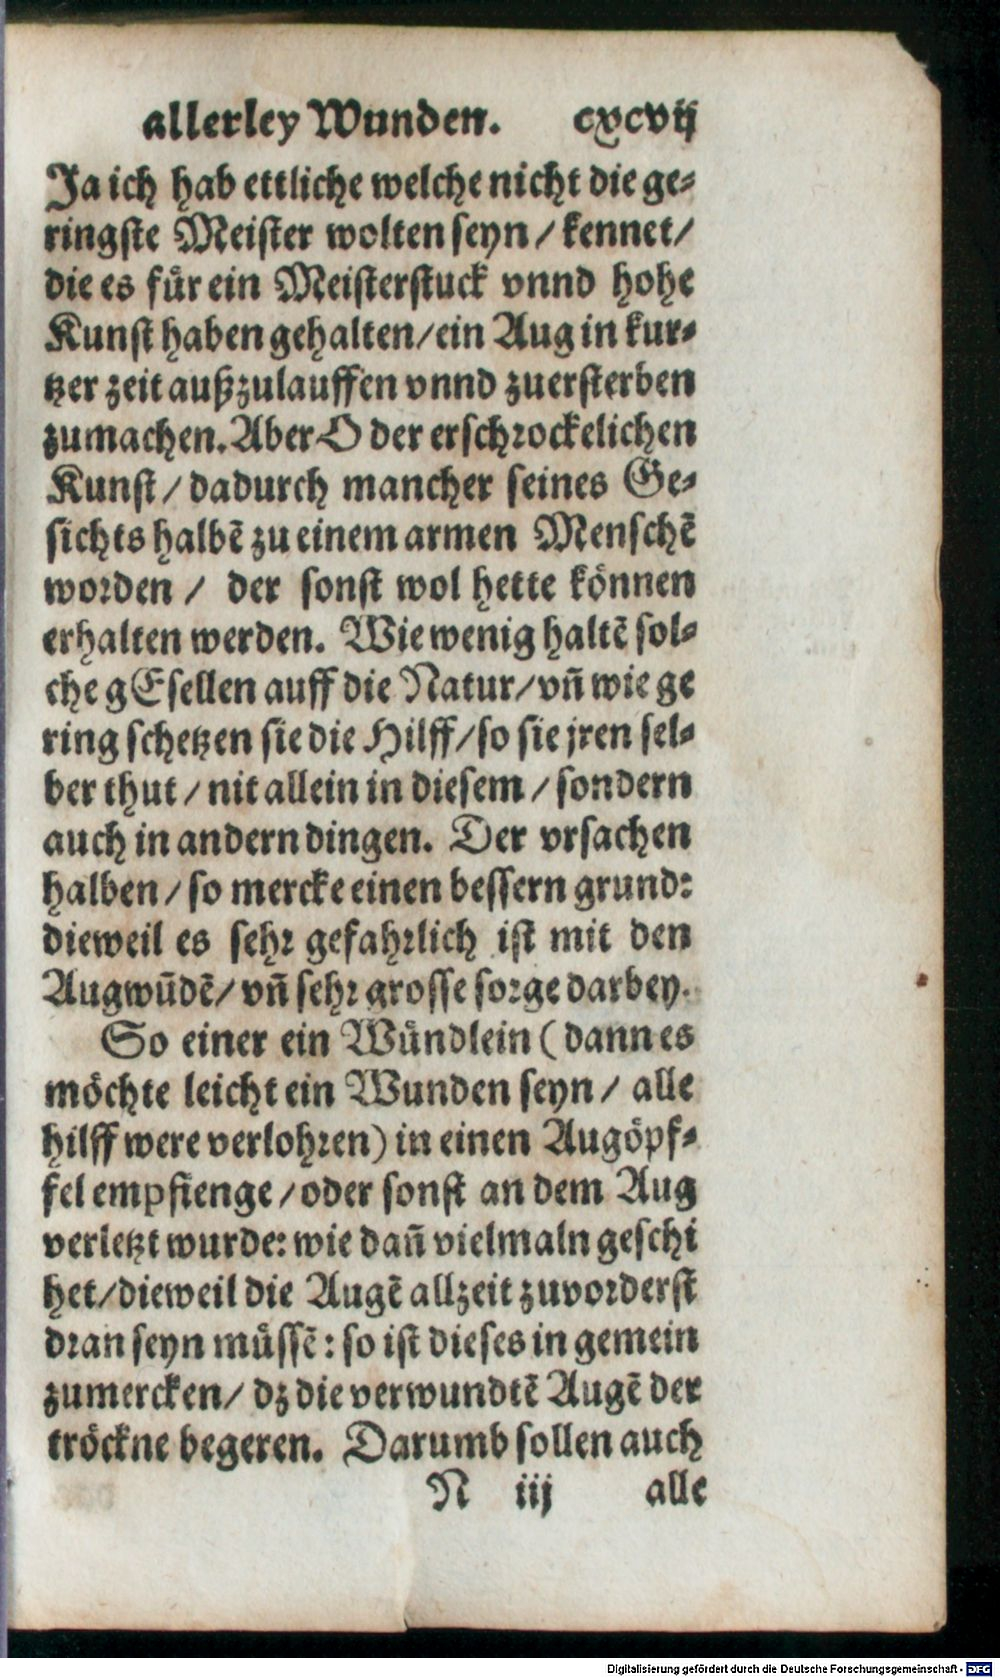 allerley Wunden. cxcvij
Ja ich hab ettliche welche nicht die ge-
ringste Meister wolten seyn / kennet /
die es fuͤr ein Meisterstuck vnnd hohe
Kunst haben gehalten / ein Aug in kur-
tzer zeit außzulauffen vnnd zuersterben
zumachen. Aber O der erschrockelichen
Kunst / dadurch mancher seines Ge-
sichts halbẽ zu einem armen Menschẽ
worden / der sonst wol hette koͤnnen
erhalten werden. Wie wenig haltẽ sol-
che gEsellen auff die Natur / vñ wie ge
ring schetzen sie die Hilff / so sie jren sel-
ber thut / nit allein in diesem / sondern
auch in andern dingen. Der vrsachen
halben / so mercke einen bessern grund:
dieweil es sehr gefahrlich ist mit den
Augwũdẽ / vñ sehr grosse sorge darbey.
So einer ein Wuͤndlein ( dann es
moͤchte leicht ein Wunden seyn / alle
hilff were verlohren) in einen Augoͤpf-
fel empfienge / oder sonst an dem Aug
verletzt wurde: wie dañ vielmaln geschi
het / dieweil die Augẽ allzeit zuvorderst
dran seyn muͤssẽ : so ist dieses in gemein
zumercken / dz die verwundtẽ Augẽ der
troͤckne begeren. Darumb sollen auch
N iij alle
Digitalisierung gefördert durch die Deutsche Forschungsgemeinschaft - DFG